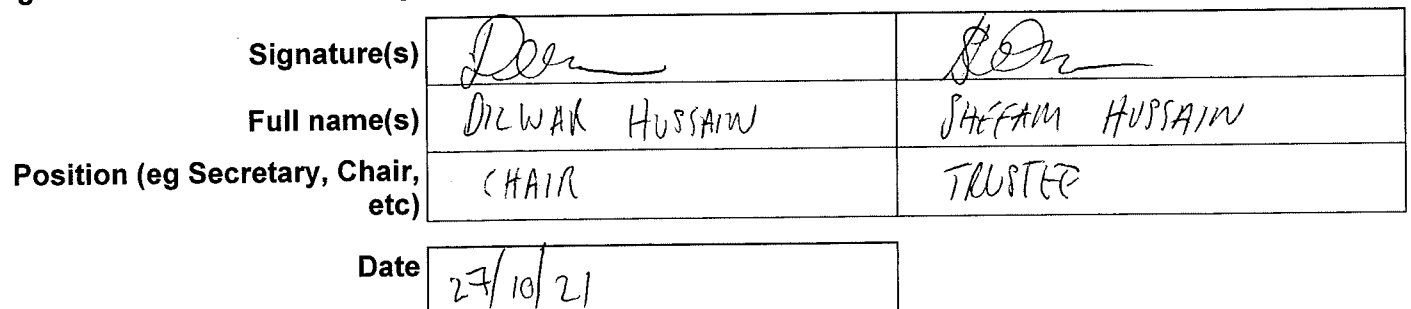 Signature(s)
Full name(s) DILWAR HUSSAIN SHEFAM HUSSAIN
Position (eg Secretary, Chair, CHAIR TRUSTEE
etc)
Date 27/10/21